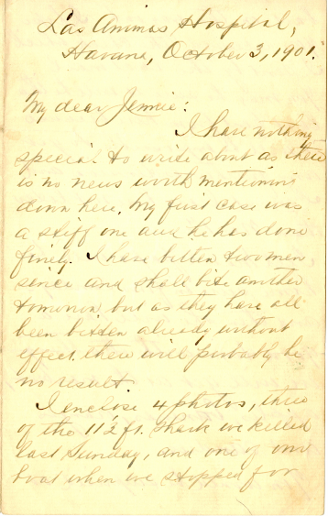 Las Animas Hospital,
Havana, October 3, 1901.
My dear Jennie:
I have nothing
special to write about as there
is no news worth mentioning
down here. My first case was
a stiff one and he has done
finely. I have bitten two men
since and shall bite another
tomorrow, but as they have all
been bitten already without
effect, there will probably be
no result.
I enclose 4 photos, three
of the 11½ ft. shark we killed
last Sunday, and one of our
boat when we stopped for